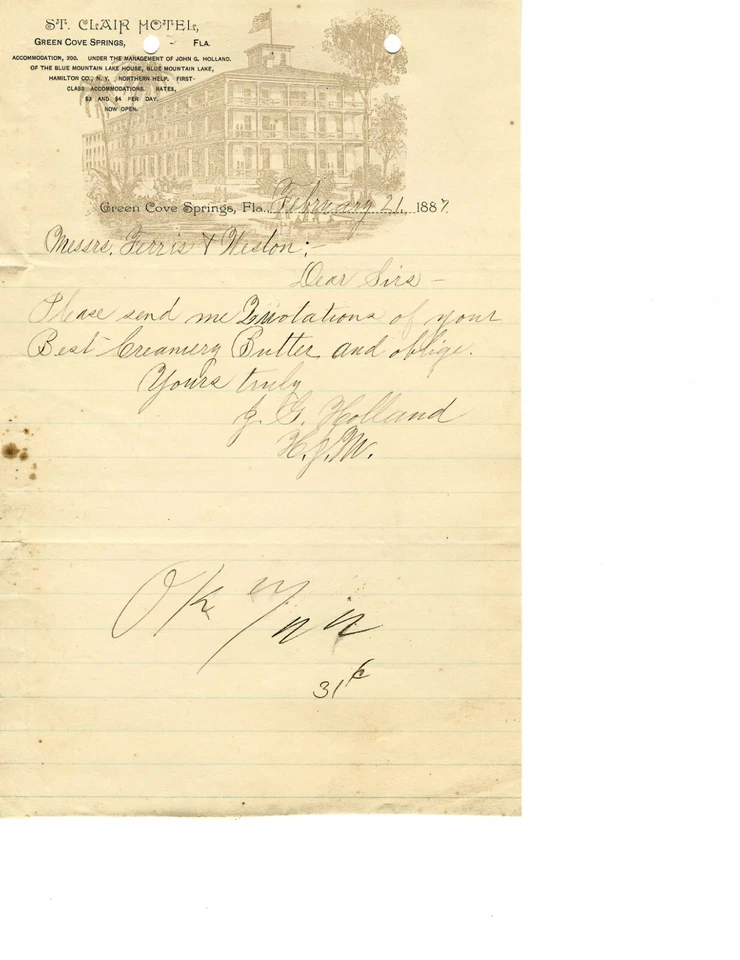 ST. CLAIR HOTEL,
GREEN COVE SPRINGS, - FLA.
ACCOMMODATION, 200. UNDER THE MANAGEMENT OF JOHN G. HOLLAND.
OF THE BLUE MOUNTAIN LAKE HOUSE, BLUE MOUNTAIN LAKE,
HAMILTON CO., N. Y. NORTHERN HELP. FIRST-
CLASS ACCOMMODATIONS. RATES,
$3 AND $4 PER DAY.
NOW OPEN.
Green Cove Springs, Fla., February 21, 1887.
Messrs. Ferris & Weston:-
Dear Sirs -
Please send me Quotations of your
Best Creamery Butter and oblige.
Yours truly
J. G. Holland
H.J.M.
OK
31¢